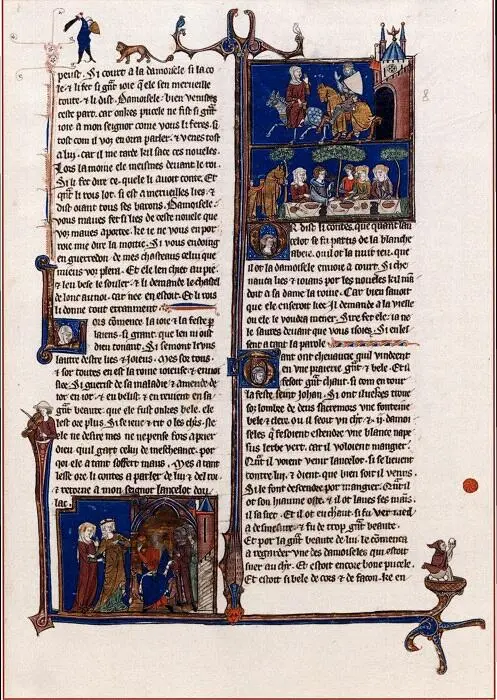 peust. Si court a la damoisele si la co
le ⁊ li fet si gñt ioie q̃ ele sen merueille
toute. ⁊ li dist. Damoisele bien veniois
ceste part. car onkes pucele ne fist si gñt
ioie a mon seignor come vous li feres. si
tost com il vos en orra parler. ⁊ venes tost
a luy. car il me tarde kil sace ces noueles.
Lors la moine ele meismes deuant le roi.
Si li fet dire ce. quele li auoit conte. Et
quāt li rois lot. si est a merueilles lies ⁊
dist oiant tous ses barons. Damoisele
vous maues fet si lies de ceste nouele que
vos maues aportee. ke ie ne vous en por
roie mie dire la moitie. Si vous endoing
en guerredon de mes chasteaus celui que
mieus vos plera. Et ele len chiet au pie
⁊ len bese le souler. ⁊ li demande le chastel
de lonc aunoi. car nee en estoit. Et li rois
li done tout erraument.
Lors comēce la ioie ⁊ la feste p
laiens. si grant. que len ni oist
dieu tonant. Si semont lvns
lautre destre lies ⁊ ioieus. Mes sor tous.
⁊ sor toutes en est la roine ioieuse ⁊ enuoi
sie. Si guerist de sa maladie ⁊ amende de
ior en ior. ⁊ en belist. ⁊ en reuient en sa
gñt beaute. que ele fust onkes bele. ele
lest ore plus. Si se ieue ⁊ rit o les chrs. se
ele ne desire mes ne nepense fors a prier
dieu. quil gart celui de mescheance. por
qoi ele a tant soffert maus. Mes a tant
lesse ore li contes a parler de lui ⁊ del roi
⁊ retorne a mon seignor lancelot dou
lac.
Or dist li contes. que quant lan
celot se fu partis de la blanche
abeie. ou il ot la nuit ieu. que
il ot la damoisele enuoie a court. Si che
uaucha lies ⁊ ioians por les noueles kil mā
doit a sa dame la roine. Car bien sauoit
que ele enseroit liee. Il demande a la vielle
ou ele le voudra mener. Sire fet ele. ia ne
le saures deuant que vous isoies. Si enlet
sent a tant la parole
Tant ont cheuaucie quil vindrent
en vne praierie gñt ⁊ bele. Et si
fesoit gñt chaut. si com en tour
la feste seint Johan. Si ont iluekes troue
soz lombre de deus sacremors vne fonteine
bele ⁊ clere. ou il seoit vn chr ⁊ .ij. damoi
seles q̃ fesoient estendre vne blance nape
sus lerbe vert. car il voloient mangier.
Qñt il voient venir lancelot. si se lieuent
contre lui. ⁊ dient. que bien soit il venus.
Si le font descendre por mangier. Qñt il
ot son hiaume oste. ⁊ il ot laue ses mais.
il sa siet. Et il ot eu chaut. si fu vermeil
a desmesure. ⁊ fu de trop gñt beaute.
Et por la gñt beaute de lui. le comēca
a regarder vne des damoiseles qui estoit
suer au chr. Et estoit encore bone pucele.
Et estoit si bele de cors ⁊ de façon. ke en